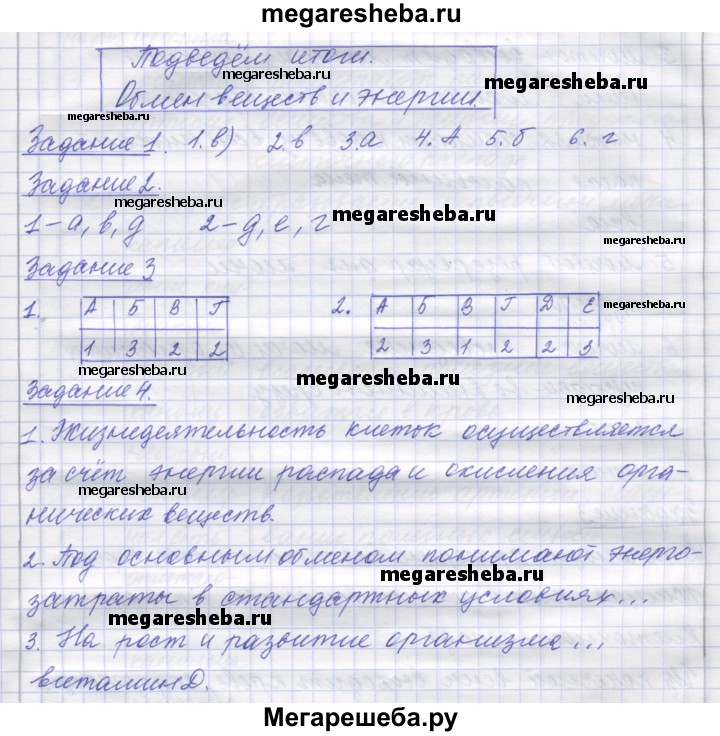 megaresheba.ru
Подведём итоги.
megaresheba.ru
megaresheba.ru
Обмен веществ и энергии.
Задание 1. 1.в) 2.в 3.а 4.А 5.б 6.г
megaresheba.ru
Задание 2.
megaresheba.ru
1-а,в,д 2-д,е,г
megaresheba.ru
Задание 3
1. А Б В Г 2. А Б В Г Д Е
megaresheba.ru
1 3 2 2 2 3 1 2 2 3
megaresheba.ru
Задание 4.
megaresheba.ru
1. Жизнедеятельность клеток осуществляется
за счёт энергии распада и окисления орга-
megaresheba.ru
нических веществ.
2. Под основным обменом понимают энерго-
megaresheba.ru
затраты в стандартных условиях...
megaresheba.ru
3. На рост и развитие организма...
витамин D.
Мегарешеба.ру